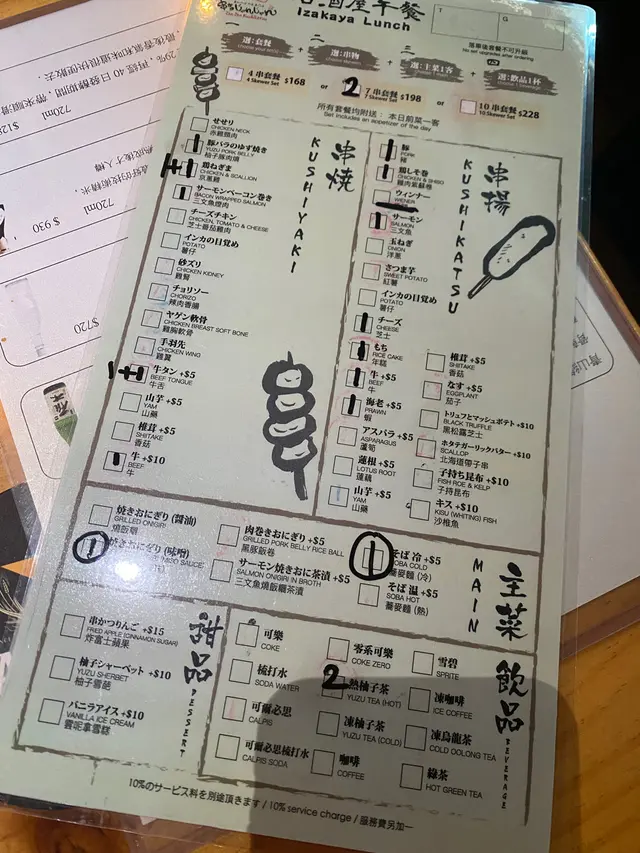 居酒屋午餐
Izakaya Lunch
T
G
落單後套餐不可升級
No set upgrade after ordering
一
選:套餐
二
選:串物
三
選:主菜1客
選:飲品1杯
4 串套餐 $168
4 Skewer Set
or
2
7 串套餐 $198
7 Skewer Set
or
10 串套餐 $228
10 Skewer Set
所有套餐均附送：本日前菜一客
Set includes an appetizer of the day
串燒
KUSHIYAKI
せせり
CHICKEN NECK
赤雞頸肉
豚バラのゆず焼き
YUZU PORK BELLY
柚子豚肉燒
鶏ねぎま
CHICKEN & SCALLION
京蔥雞
サーモンベーコン巻き
BACON WRAPPED SALMON
三文魚煙肉
チーズチキン
CHICKEN, TOMATO & CHEESE
芝士番茄雞肉
インカの目覚め
POTATO
薯仔
砂ズリ
CHICKEN KIDNEY
雞腎
チョリソー
CHORIZO
辣肉香腸
ヤゲン軟骨
CHICKEN BREAST SOFT BONE
雞胸軟骨
手羽先
CHICKEN WING
雞翼
牛タン +$5
BEEF TONGUE
牛舌
山芋 +$5
YAM
山藥
椎茸 +$5
SHIITAKE
香菇
牛 +$10
BEEF
牛
串揚
KUSHIKATSU
豚
PORK
豬
鶏しそ巻
CHICKEN & SHISO
雞肉紫蘇卷
ウィンナー
WIENER
サーモン
SALMON
三文魚
玉ねぎ
ONION
洋蔥
さつま芋
SWEET POTATO
紅薯
インカの目覚め
POTATO
薯仔
チーズ
CHEESE
芝士
もち
RICE CAKE
年糕
牛 +$5
BEEF
牛
海老 +$5
PRAWN
蝦
アスパラ +$5
ASPARAGUS
蘆筍
蓮根 +$5
LOTUS ROOT
蓮藕
山芋 +$5
YAM
山藥
椎茸 +$5
SHIITAKE
香菇
なす +$5
EGGPLANT
茄子
トリュフとマッシュポテト +$10
BLACK TRUFFLE
黑松露芝士
ホタテガーリックバター +$10
SCALLOP
北海道帶子串
子持ち昆布 +$10
FISH ROE & KELP
子持昆布
キス +$10
KISU (WHITING) FISH
沙椎魚
主菜
MAIN
焼きおにぎり (醤油)
GRILLED ONIGIRI
燒飯糰
1
焼きおにぎり (味噌)
肉巻きおにぎり +$5
GRILLED PORK BELLY RICE BALL
黑豚飯卷
サーモン焼きおに茶漬 +$5
SALMON ONIGIRI IN BROTH
三文魚燒飯糰茶漬
そば 冷 +$5
SOBA COLD
蕎麥麵 (冷)
そば 温 +$5
SOBA HOT
蕎麥麵 (熱)
甜品
DESSERT
串かつりんご +$15
FRIED APPLE (CINNAMON SUGAR)
炸富士蘋果
柚子シャーベット +$10
YUZU SHERBET
柚子雪葩
バニラアイス +$10
VANILLA ICE CREAM
雲呢拿雪糕
飲品
BEVERAGE
可樂
COKE
梳打水
SODA WATER
可爾必思
CALPIS
可爾必思梳打水
CALPIS SODA
零系可樂
COKE ZERO
2
熱柚子茶
YUZU TEA (HOT)
凍柚子茶
YUZU TEA (COLD)
咖啡
COFFEE
雪碧
SPRITE
凍咖啡
ICE COFFEE
凍烏龍茶
COLD OOLONG TEA
綠茶
HOT GREEN TEA
10%のサービス料を別途頂きます / 10% service charge / 服務費另加一
720ml
720ml
$ 930
$720